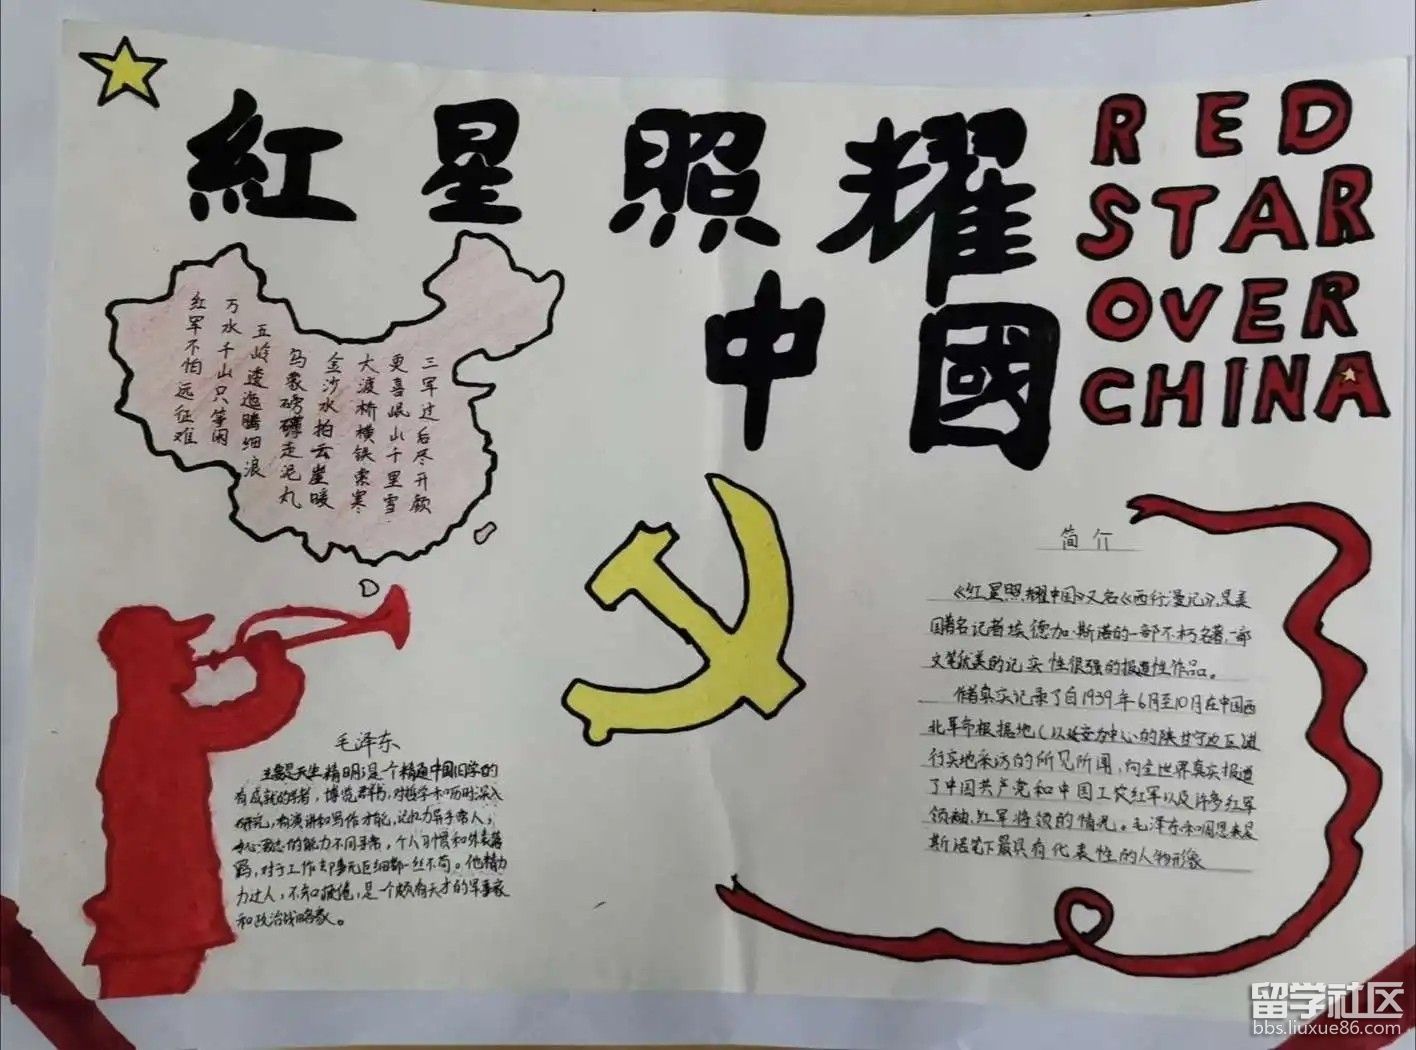 紅星照耀
中國
RED
STAR
OVER
CHINA
红军不怕远征难
万水千山只等闲
五岭逶迤腾细浪
乌蒙磅礴走泥丸
金沙水拍云崖暖
大渡桥横铁索寒
更喜岷山千里雪
三军过后尽开颜
简介
《红星照耀中国》又名《西行漫记》,是美
国著名记者埃德加·斯诺的一部不朽名著,一部
文笔优美的记实性很强的报道性作品。
作者真实记录了自1939年6月至10月在中国西
北革命根据地(以延安为中心的陕甘宁边区)进
行实地采访的所见所闻,向全世界真实报道
了中国共产党和中国工农红军以及许多红军
领袖、红军将领的情况。毛泽东和周恩来是
斯诺笔下最具有代表性的人物形象
毛泽东
天生精明:是个精通中国旧学的
有成就的学者，博览群书，对哲学和历史深入
研究，有演讲和写作才能，记忆力异乎常人，
的能力不同寻常，个人习惯和外表落
对于工作却事无巨细都一丝不苟。他精力
力过人，不知疲倦，是一个颇有天才的军事家
和政治战略家。
留学社区
bbs.liuxue86.com